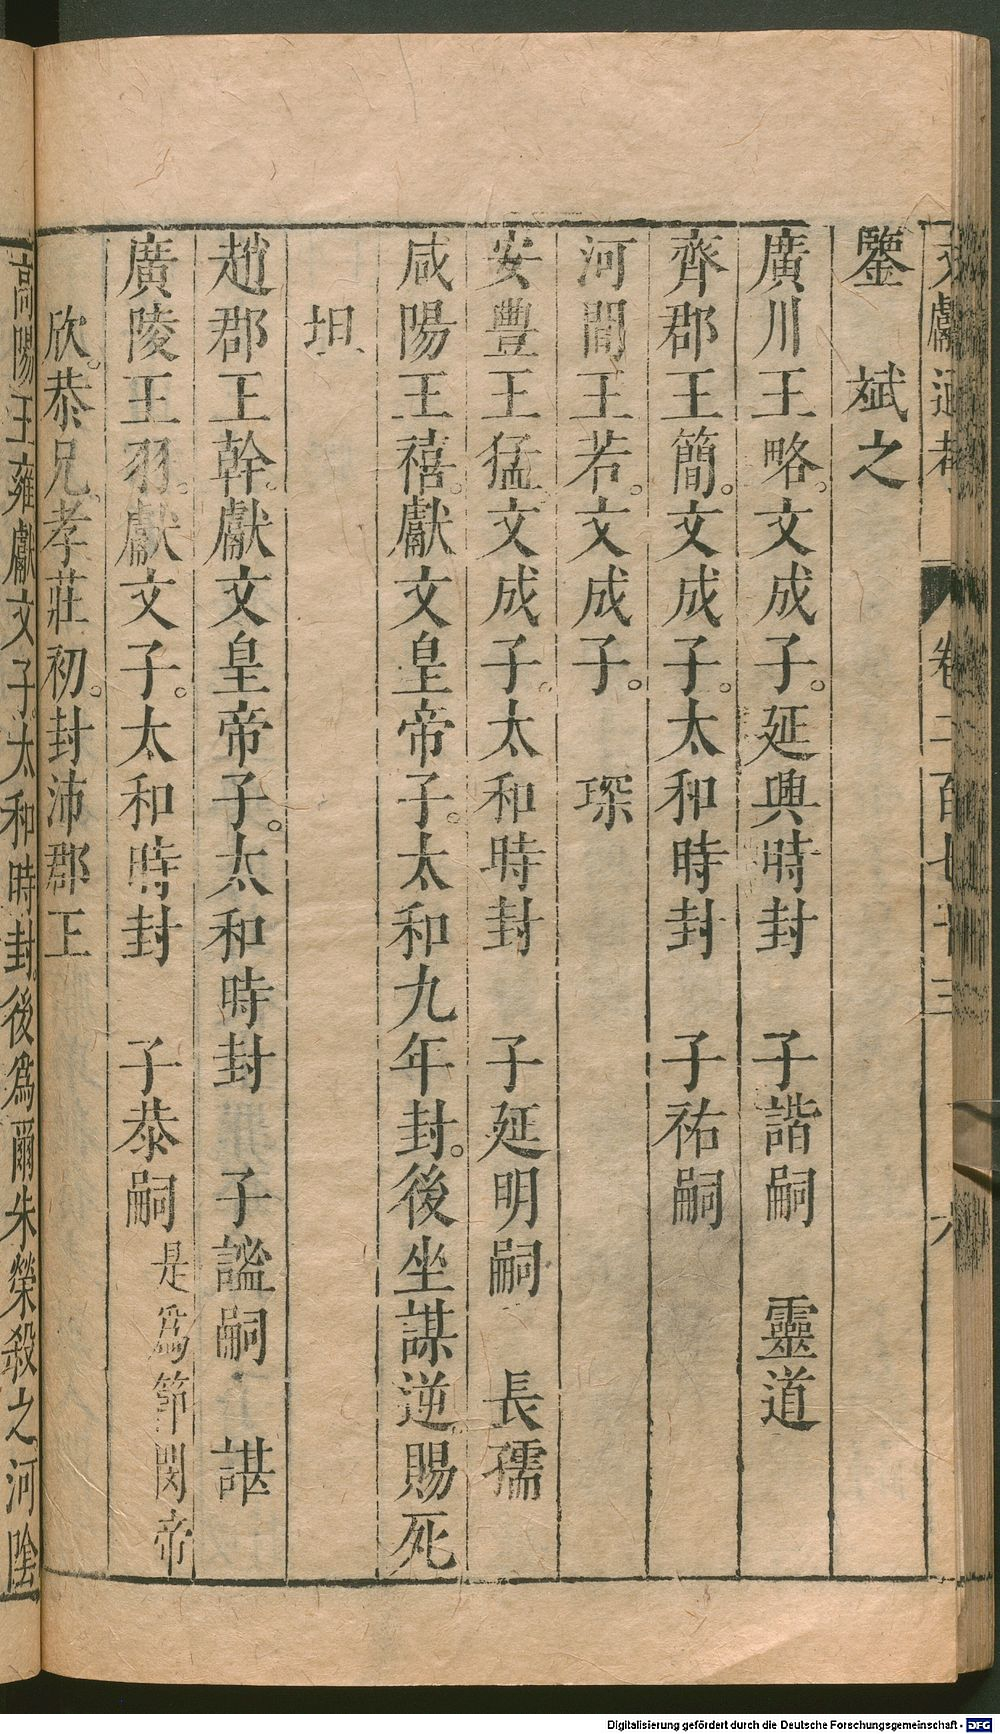 文獻通考 卷二百七十三 六
鑒 斌之
廣川王略。文成子。延興時封 子諧嗣 靈道
齊郡王簡。文成子。太和時封 子祐嗣
河間王若。文成子。 琛
安豐王猛。文成子。太和時封 子延明嗣 長孺
咸陽王禧。獻文皇帝子。太和九年封。後坐謀逆賜死
坦
趙郡王幹。獻文皇帝子。太和時封 子謐嗣 諶
廣陵王羽。獻文子。太和時封 子恭嗣 是爲節閔帝
欣。恭兄。孝莊初。封沛郡王
高陽王雍獻文子。太和時封。後爲爾朱榮殺之河陰
Digitalisierung gefördert durch die Deutsche Forschungsgemeinschaft - DFG